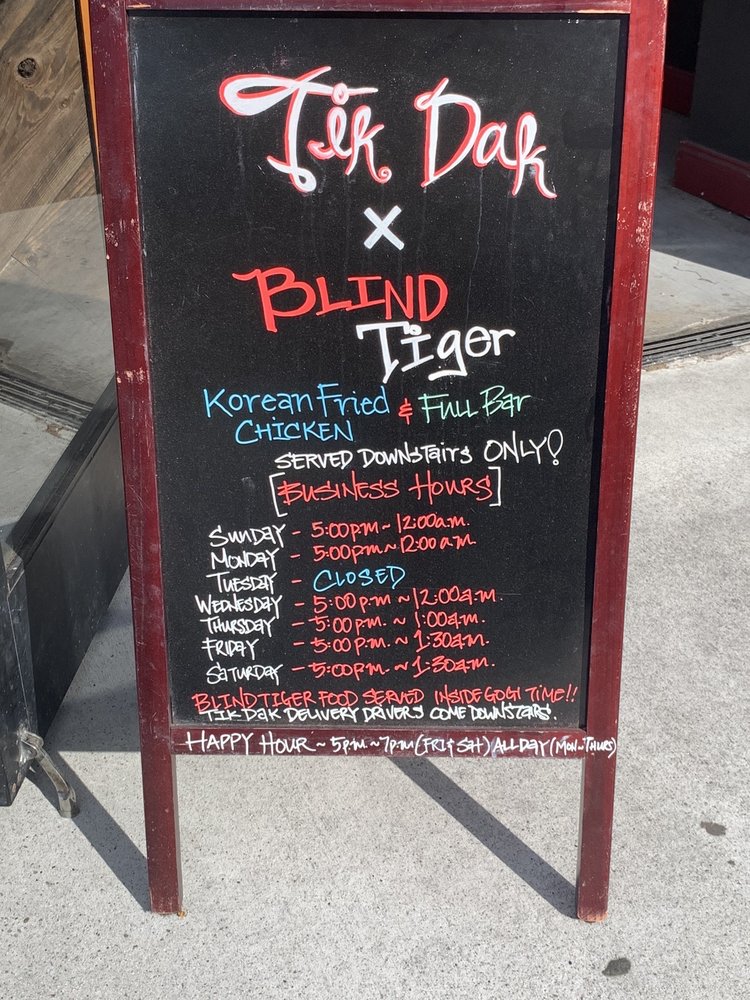 Tik Dak
x
BLIND
Tiger
Korean Fried & FULL Bar
CHICKEN
SERVED DOWNSTairs ONLY!
[BUSINESS HOURS]
SUNDAY - 5:00pm ~ 12:00a.m.
MONDAY - 5:00pm ~ 12:00 a.m.
TUESDAY - CLOSED
WEDNESDAY - 5:00 p.m ~ 12:00a.m.
THURSDAY - 5:00 p.m. ~ 1:00a.m.
FRIDAY - 5:00 p.m. ~ 1:30a.m.
SATURDAY - 5:00pm. ~ 1:30a.m.
BLIND TIGER FOOD SERVED INSIDE GOGI TIME!!
TIK DAK DELIVERY DRIVERS COME DOWNSTAIRS.
HAPPY HOUR ~ 5pm ~ 7pm (FRI & SAT) ALL DAY (MON ~ THURS)